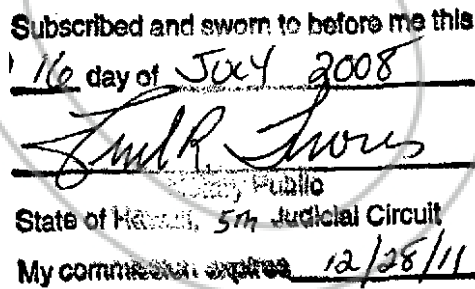 Subscribed and sworn to before me this
16 day of JULY 2008
Notary Public
State of Hawaii, 5TH Judicial Circuit
My commission expires 12/28/11